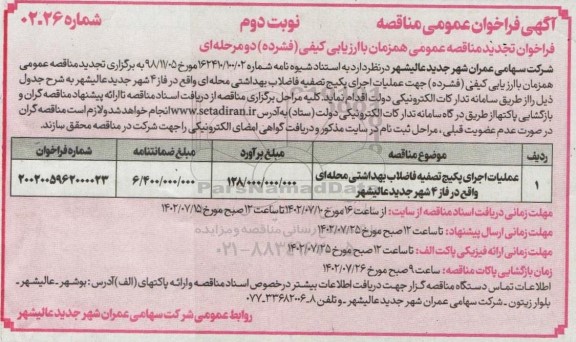 آگهی فراخوان عمومی مناقصه
نوبت دوم
شماره ۰۲.۲۶
فراخوان تجدید مناقصه عمومی همزمان با ارزیابی کیفی (فشرده) دو مرحله ای
شرکت سهامی عمران شهر جدید عالیشهر در نظر دارد به استناد شیوه نامه شماره ۱۶۲۴۱۰/۱۰۰/۰۲ مورخ ۹۸/۱۱/۰۵ به برگزاری تجدید مناقصه عمومی
همزمان با ارزیابی کیفی (فشرده) جهت عملیات اجرای پکیج تصفیه فاضلاب بهداشتی محله ای واقع در فاز ۴ شهر جدید عالیشهر به شرح جدول
ذیل را از طریق سامانه تدارکات الکترونیکی دولت اقدام نماید. کلیه مراحل برگزاری مناقصه از دریافت اسناد مناقصه تا ارائه پیشنهاد مناقصه گران و
بازگشایی پاکتها از طریق درگاه سامانه تدارکات الکترونیکی دولت (ستاد) به آدرس www.setadiran.ir انجام خواهد شد و لازم است مناقصه گران
در صورت عدم عضویت قبلی، مراحل ثبت نام در سایت مذکور و دریافت گواهی امضای الکترونیکی را جهت شرکت در مناقصه محقق سازند.
ردیف موضوع مناقصه مبلغ برآورد مبلغ ضمانتنامه شماره فراخوان
۱ عملیات اجرای پکیج تصفیه فاضلاب بهداشتی محله ای واقع در فاز ۴ شهر جدید عالیشهر ۱۲۸/۰۰۰/۰۰۰/۰۰۰ ۶/۴۰۰/۰۰۰/۰۰۰ ۲۰۰۲۰۰۵۹۶۲۰۰۰۰۲۳
مهلت زمانی دریافت اسناد مناقصه از سایت: از ساعت ۱۶ مورخ ۱۴۰۲/۰۷/۱۰ تا ساعت ۱۲ صبح مورخ ۱۴۰۲/۰۷/۱۵
مهلت زمانی ارسال پیشنهاد: تا ساعت ۱۲ صبح مورخ ۱۴۰۲/۰۷/۲۵
مهلت زمانی ارائه فیزیکی پاکت الف: تا ساعت ۱۲ صبح مورخ ۱۴۰۲/۰۷/۲۵
زمان بازگشایی پاکات مناقصه: ساعت ۹ صبح مورخ ۱۴۰۲/۰۷/۲۶
اطلاعات تماس دستگاه مناقصه گزار جهت دریافت اطلاعات بیشتر در خصوص اسناد مناقصه و ارائه پاکتهای (الف) آدرس: بوشهر ـ عالیشهر ـ
بلوار زیتون ـ شرکت سهامی عمران شهر جدید عالیشهر ـ و تلفن ۸ـ۳۳۶۸۲۰۰۶ـ۰۷۷
روابط عمومی شرکت سهامی عمران شهر جدید عالیشهر